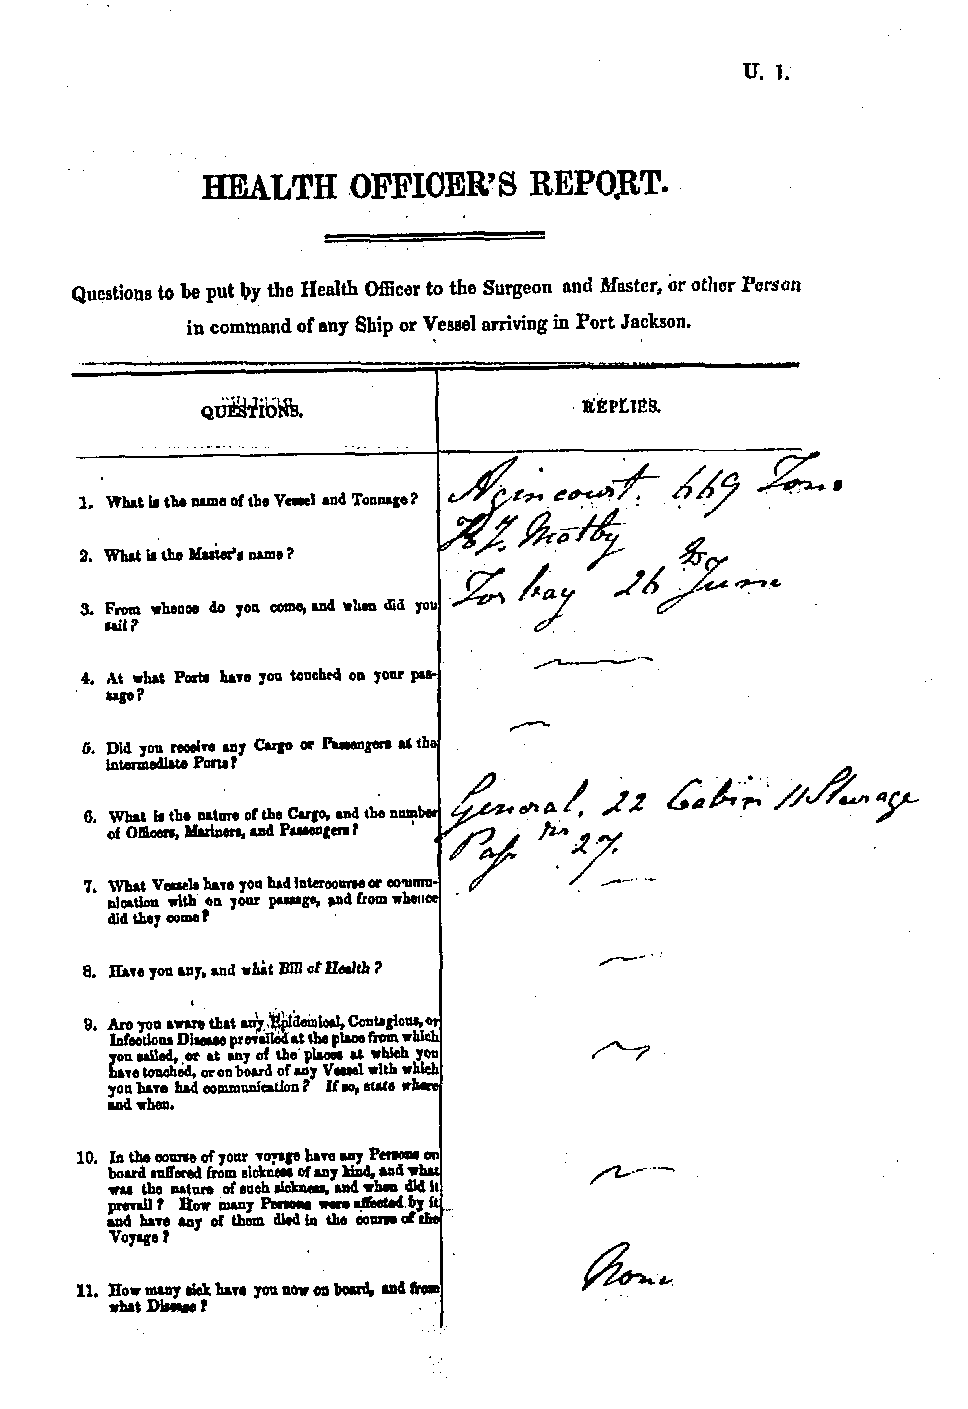 U. 1.
HEALTH OFFICER'S REPORT.
Questions to be put by the Health Officer to the Surgeon and Master, or other Person
in command of any Ship or Vessel arriving in Port Jackson.
QUESTIONS.
REPLIES.
1. What is the name of the Vessel and Tonnage?
Agincourt. 669 Tons
2. What is the Master's name?
3. From whence do you come, and when did you
sail?
Torbay 26 June
4. At what Ports have you touched on your pas-
sage?
5. Did you receive any Cargo or Passengers at the
intermediate Ports?
6. What is the nature of the Cargo, and the number
of Officers, Mariners, and Passengers?
General. 22 Cabin 11 Steerage
27.
7. What Vessels have you had intercourse or commu-
nication with on your passage, and from whence
did they come?
8. Have you any, and what Bill of Health?
9. Are you aware that any Epidemical, Contagious, or
Infectious Disease prevailed at the place from which
you sailed, or at any of the places at which you
have touched, or on board of any Vessel with which
you have had communication? If so, state where
and when.
10. In the course of your voyage have any Persons on
board suffered from sickness of any kind, and what
was the nature of such sickness, and when did it
prevail? How many Persons were affected by it
and have any of them died in the course of the
Voyage?
11. How many sick have you now on board, and from
what Disease?
None